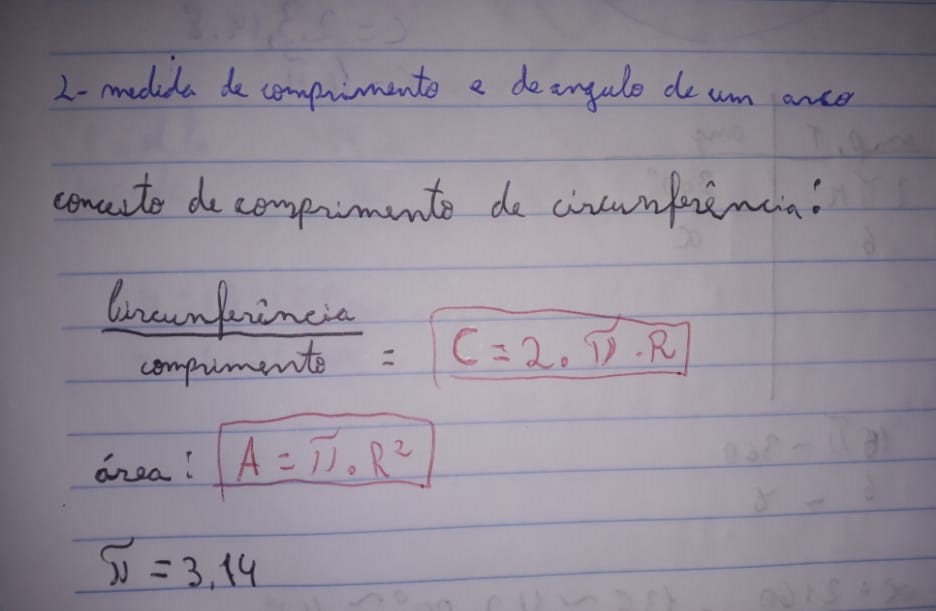 2- medida de comprimento e de angulo de um arco
conceito de comprimento de circunferência:
Circunferência
comprimento = C = 2. π . R
área: A = π . R²
π = 3,14